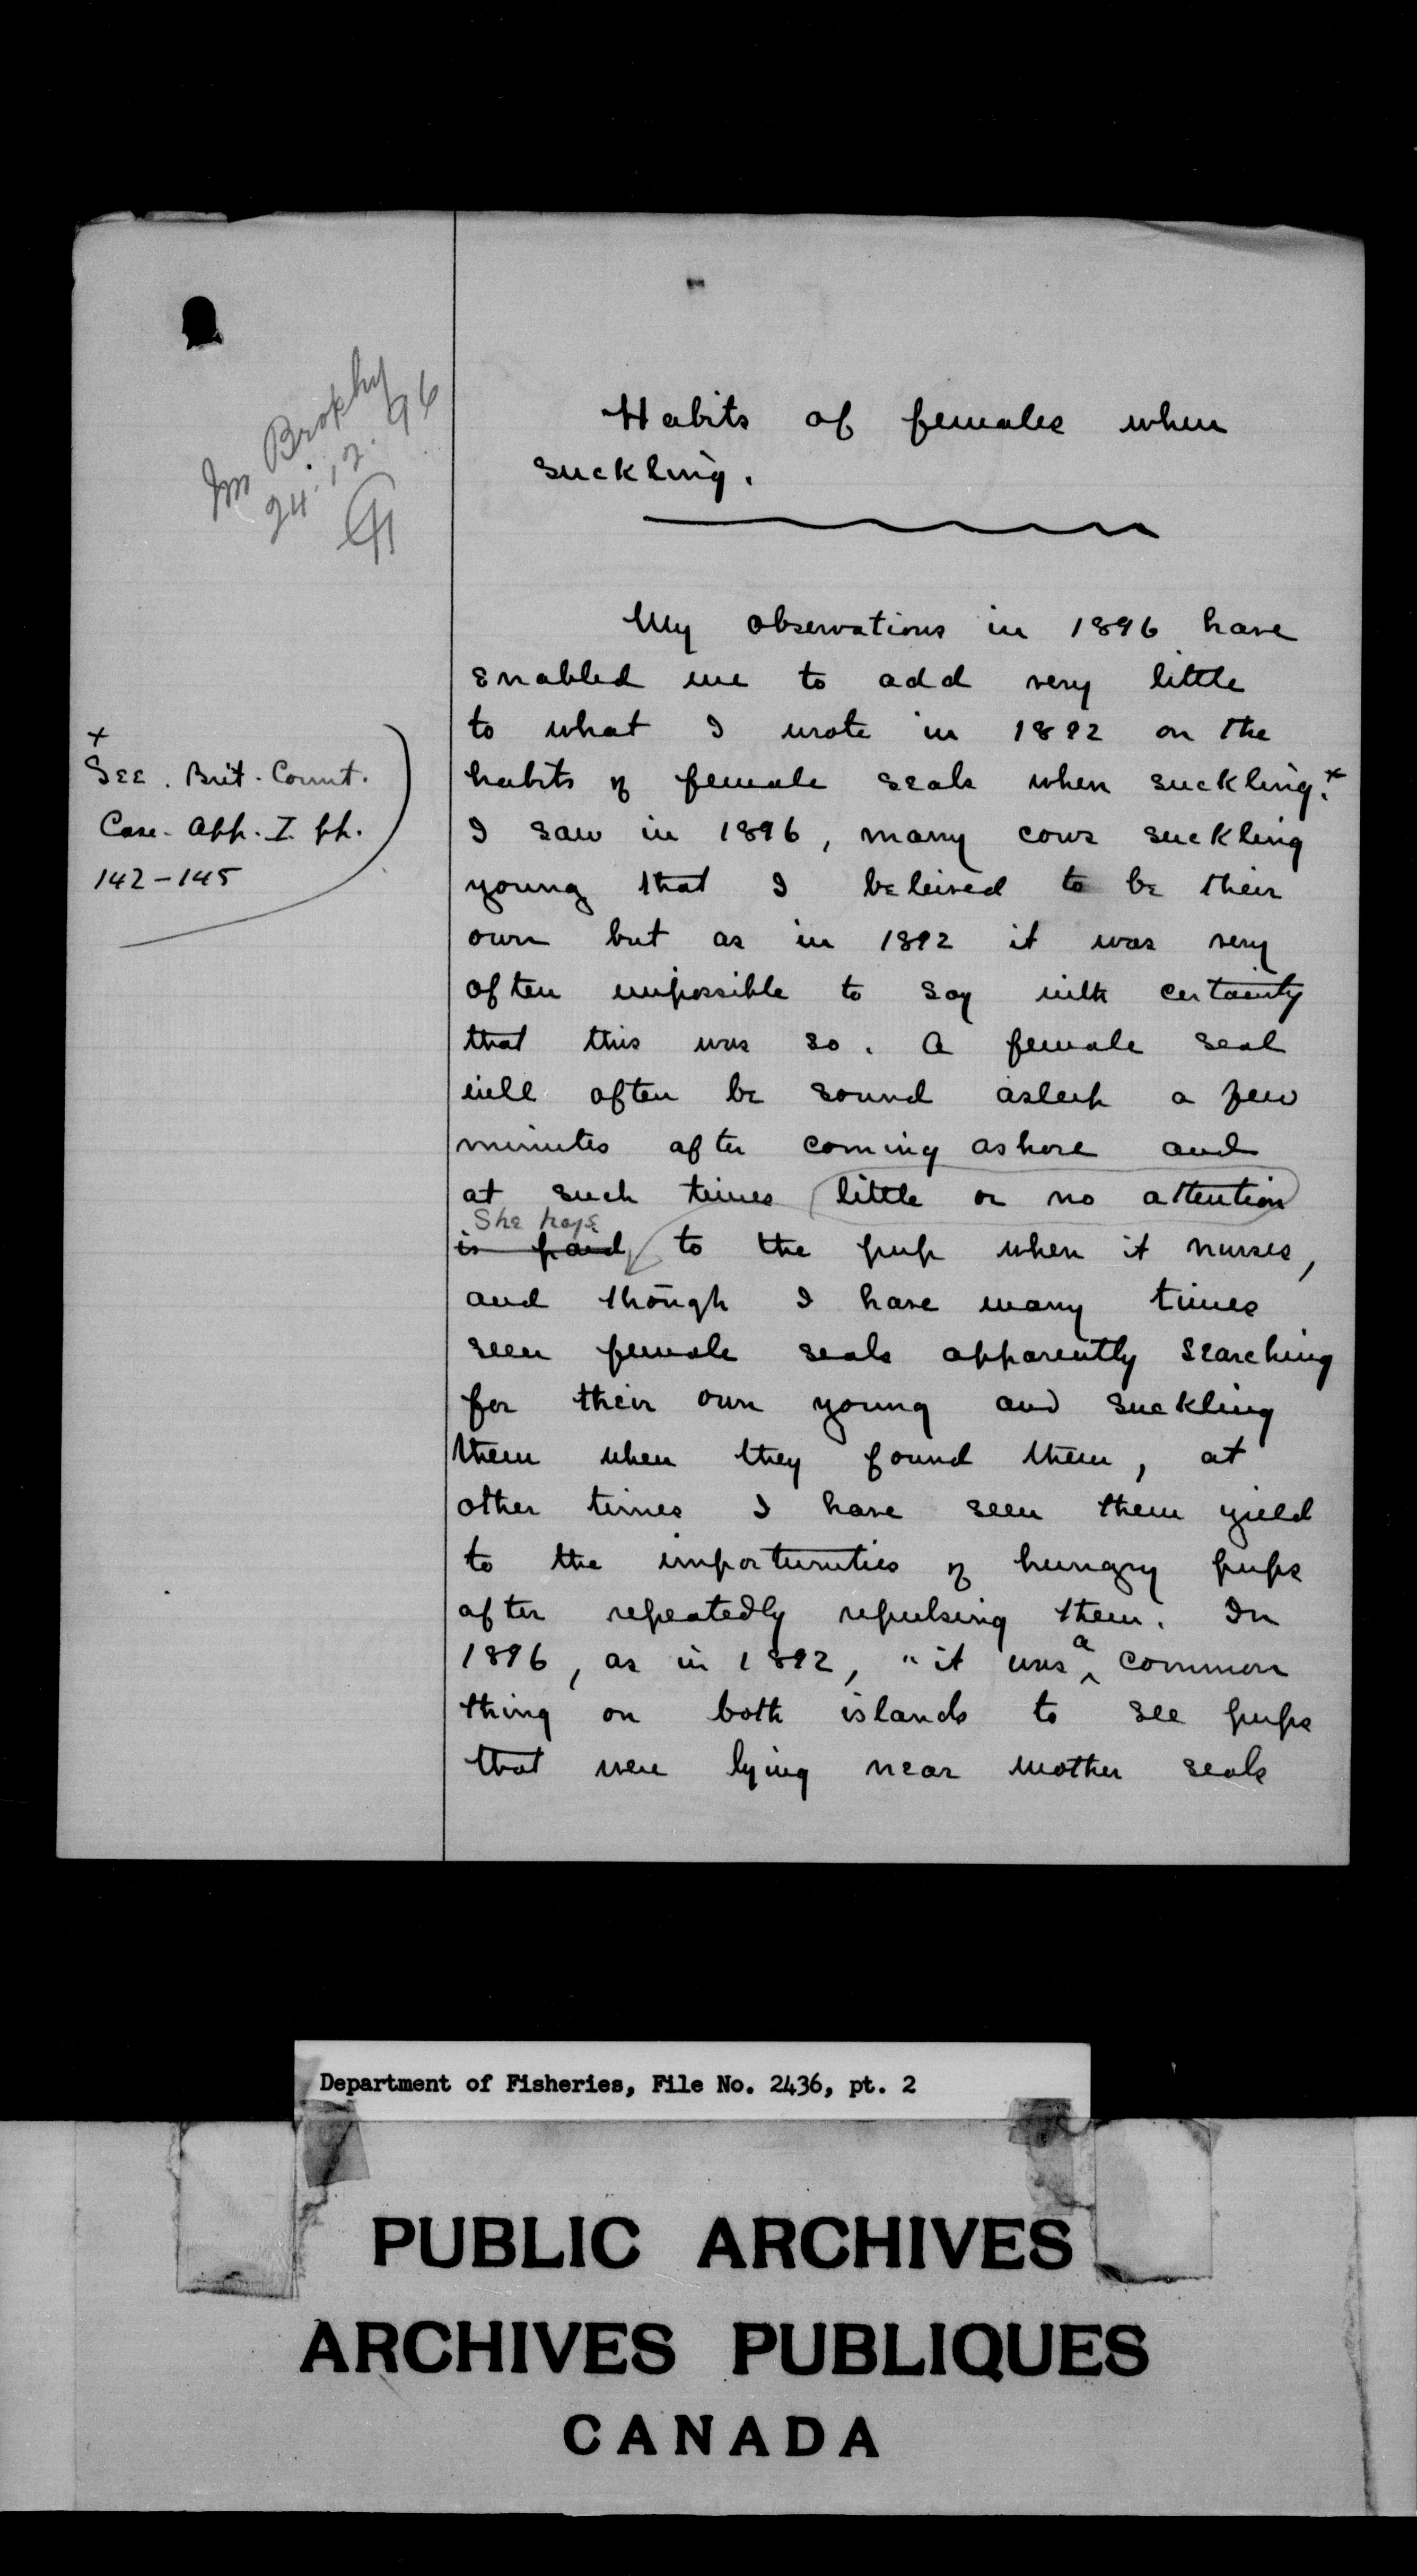 Mr Brophy
24.12.96
Habits of females when
suckling.
My observations in 1896 have
enabled me to add very little
to what I wrote in 1892 on the
habits of female seals when suckling.x
x
See. Brit. Count.
Case. App. I pp.
142-145
I saw in 1896, many cows suckling
young that I beleived to be their
own but as in 1892 it was very
often impossible to say with certainty
that this was so. A female seal
will often be sound asleep a few
minutes after coming ashore and
at such times little or no attention
She pays
is paid to the pup when it nurses,
and though I have many times
seen female seals apparently searching
for their own young and suckling
them when they found them, at
other times I have seen them yield
to the importunities of hungry pups
after repeatedly repulsing them. In
1896, as in 1892, "it was a common
thing on both islands to see pups
that were lying near mother seals
Department of Fisheries, File No. 2436, pt. 2
PUBLIC ARCHIVES
ARCHIVES PUBLIQUES
CANADA